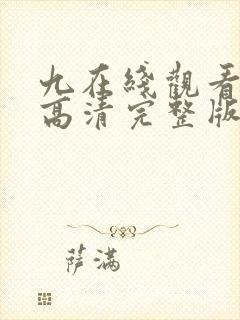 九在綫觀看
高清完整版
萨满